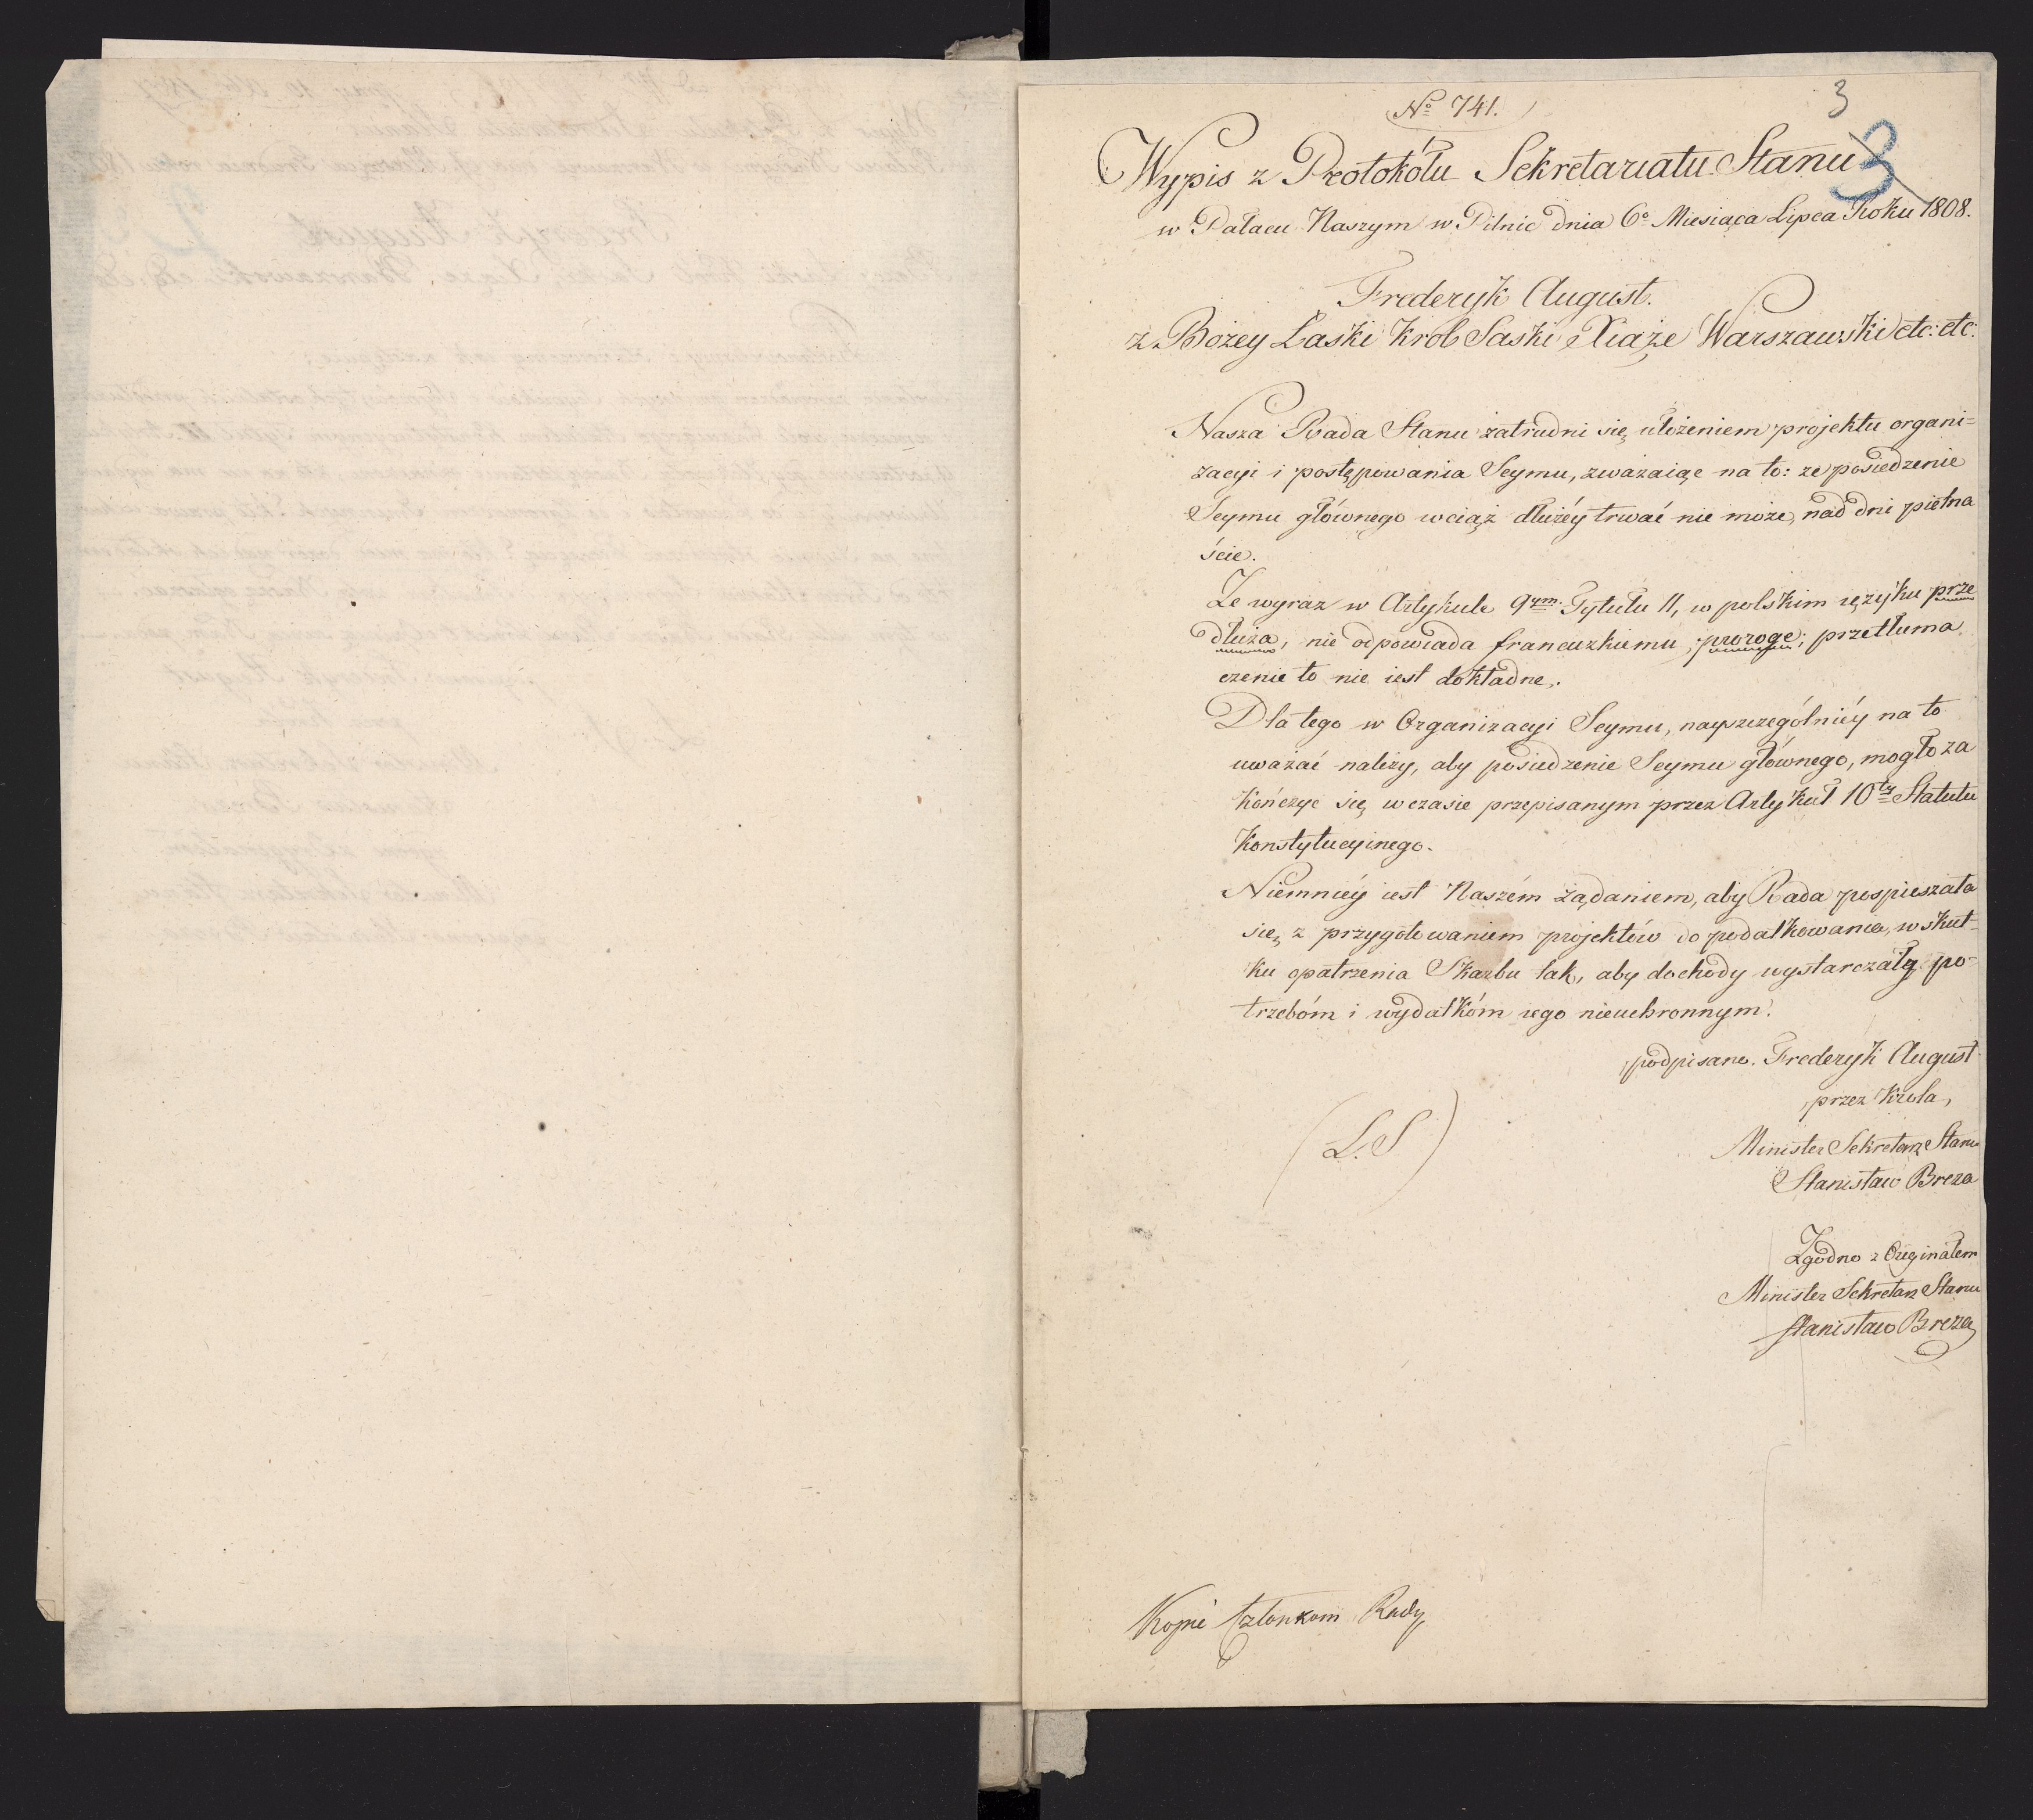 3
No 741.
3
Wypis z Protokółu Sekretariatu Stanu
w Pałacu Naszym w Pilnic dnia 6o Miesiąca Lipca Roku 1808.
Frederyk August.
z Bożey Łaski Krol Saski Xiąże Warszawski etc: etc:
Nasza Rada Stanu zatrudni się ułożeniem projektu organi=
zacyi i postępowania Seymu, zważaiąc na to: że posiedzenie
Seymu głównego wciąż dłużéy trwać nie może, nad dni piętna
ście.
Że wyraz w Artykule 9ym Tytułu 11, w polskim ięzyku prze
dłuża, nie odpowiada francuzkiemu, proroge; przetłuma
czenie to nie iest dokładne.
Dla tego w Organizacyi Seymu, nayszczególniéy na to
uważać należy, aby posiedzenie Seymu głównego, mogło za
kończyć się w czasie przepisanym przez Artykuł 10ty Statutu
Konstytucyinego.
Niemniéy iest Naszém żądaniem, aby Rada pospieszała
się z przygotowaniem projektów do podatkowania, w skut=
ku opatrzenia Skarbu tak, aby dochody wystarczały po=
trzebóm i wydatkóm iego nieuchronnym.
podpisano. Frederyk August
przez Krola,
(L.S)
Minister Sekretarz Stanu
Stanisław Breza
Zgodno z Oryginałem
Minister Sekretarz Stanu
Stanisław Breza
Kopie Członkom Rady